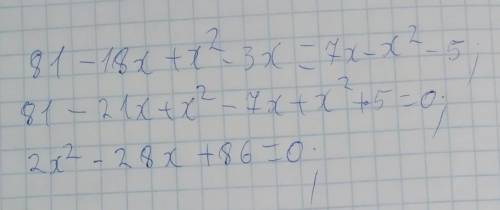 81 - 18x + x² - 3x = 7x - x² - 5;
81 - 21x + x² - 7x + x² + 5 = 0;
2x² - 28x + 86 = 0;